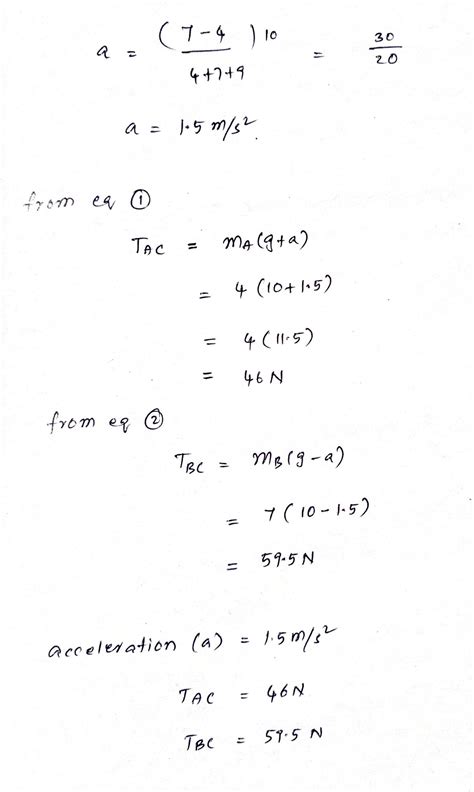 a = (7-4)10 / 4+7+9 = 30/20
a = 1.5 m/s².
from eq ①
TAC = mA(g+a)
= 4 (10+1.5)
= 4 (11.5)
= 46 N
from eq ②
TBC = mB(g-a)
= 7 (10-1.5)
= 59.5 N
acceleration (a) = 1.5 m/s²
TAC = 46N
TBC = 59.5 N